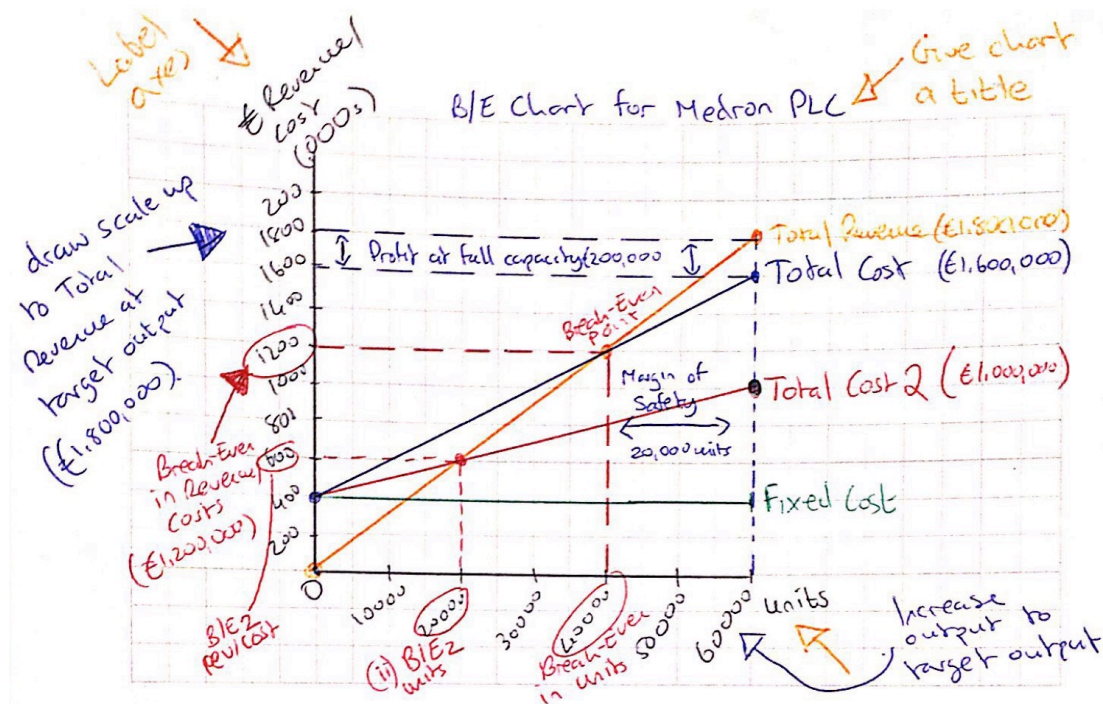 Label
axes
€ Revenue/
Cost
(000s)
B/E Chart for Medron PLC
Give chart
a title
draw scale up
to Total
Revenue at
target output
(€1,800,000).
200
1800
1600
1400
1200
1000
800
600
400
200
Profit at full capacity(200,000
Total Revenue (€1,800,000)
Total Cost (€1,600,000)
Break-Even
Point
Total Cost 2 (€1,000,000)
Margin of
Safety
20,000 units
Fixed Cost
Break-Even
in Revenue/
Costs
(€1,200,000)
B/E2
rev/cost
0
10000
20000
30000
40000
50000
60000
units
(ii) B/E2
units
Break-Even
in units
Increase
output to
target output